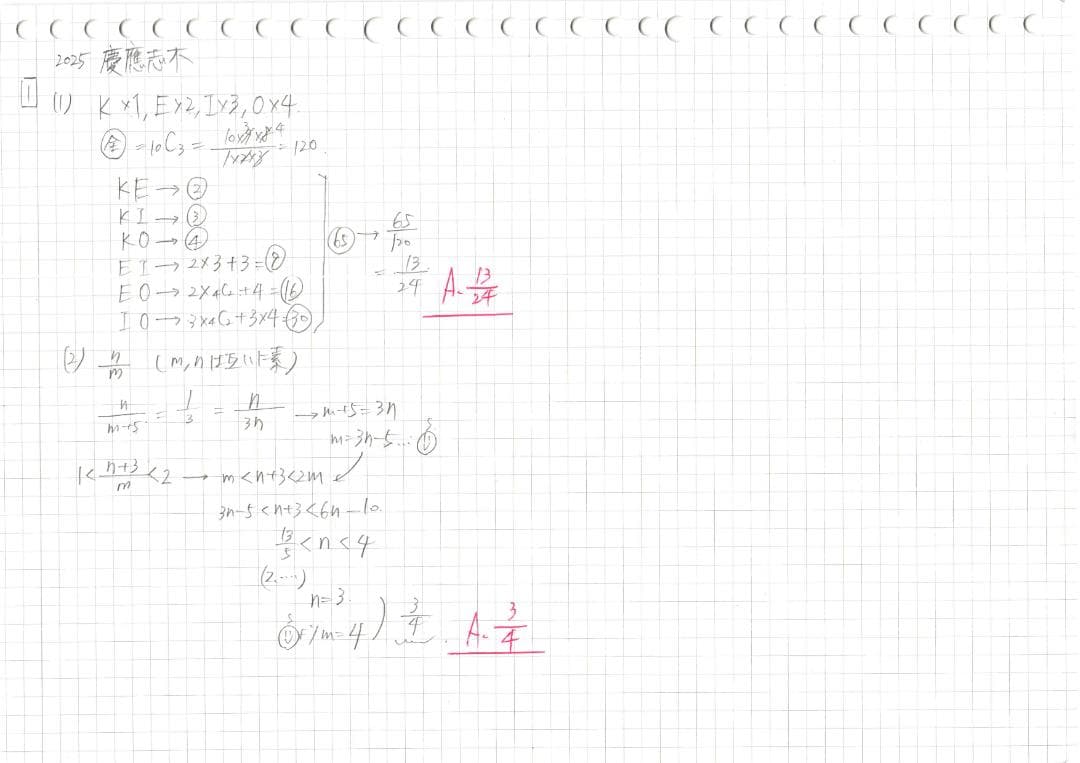 2025 慶應志木
1 (1) K×1, E×2, I×3, O×4.
全 = 10C3 = 10×9×8 4 / 1×2×3 = 120.
KE → ②
KI → ③
KO → ④
EI → 2×3+3=⑨
EO → 2×4C2+4=⑯
IO → 3×4C2+3×4=㉚
65 → 65/120
= 13/24 A. 13/24
(2) n/m (m, nは互いに素)
n/m+5 = 1/3 = n/3n → m+5=3n
m=3n-5 … ①
1< n+3/m <2 → m<n+3<2m
3n-5<n+3<6n-10.
13/5 <n<4
(2.…)
n=3.
①よりm=4 ) 3/4 A. 3/4